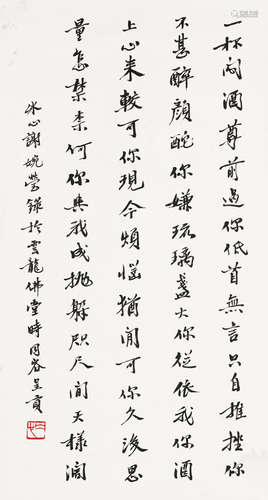 一杯悶酒尊前過你低首無言只自摧挫你
不甚醉顏酡你嫌琉璃盞大你從依我你酒
上心來較可你現今煩惱猶閒可你久後思
量怎禁奈何你與我成拋躲咫尺間天樣闊
冰心謝婉瑩錄於雲龍佛堂時同客呈貢